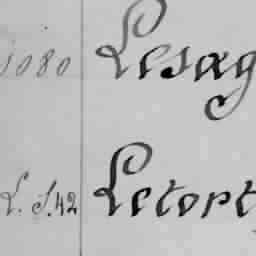 1080 Lesag
L. S. 42 Letort